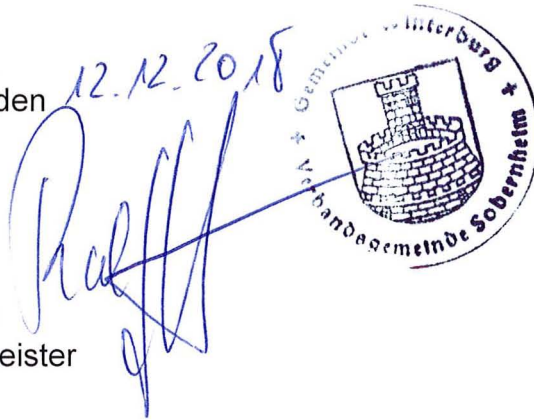 den 12.12.2018
+ Gemeinde Winterburg +
Verbandsgemeinde Sobernheim
eister